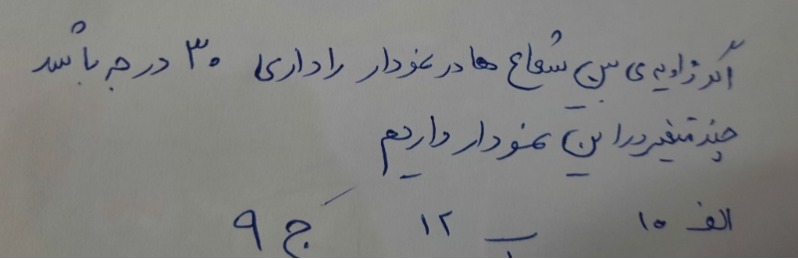 اگر زاویه ی بین شعاع ها در نمودار راداری ۳۰ درجه باشد
چند متغیر در این نمودار داریم
الف ۱۰ ب ۱۲ ج ۹